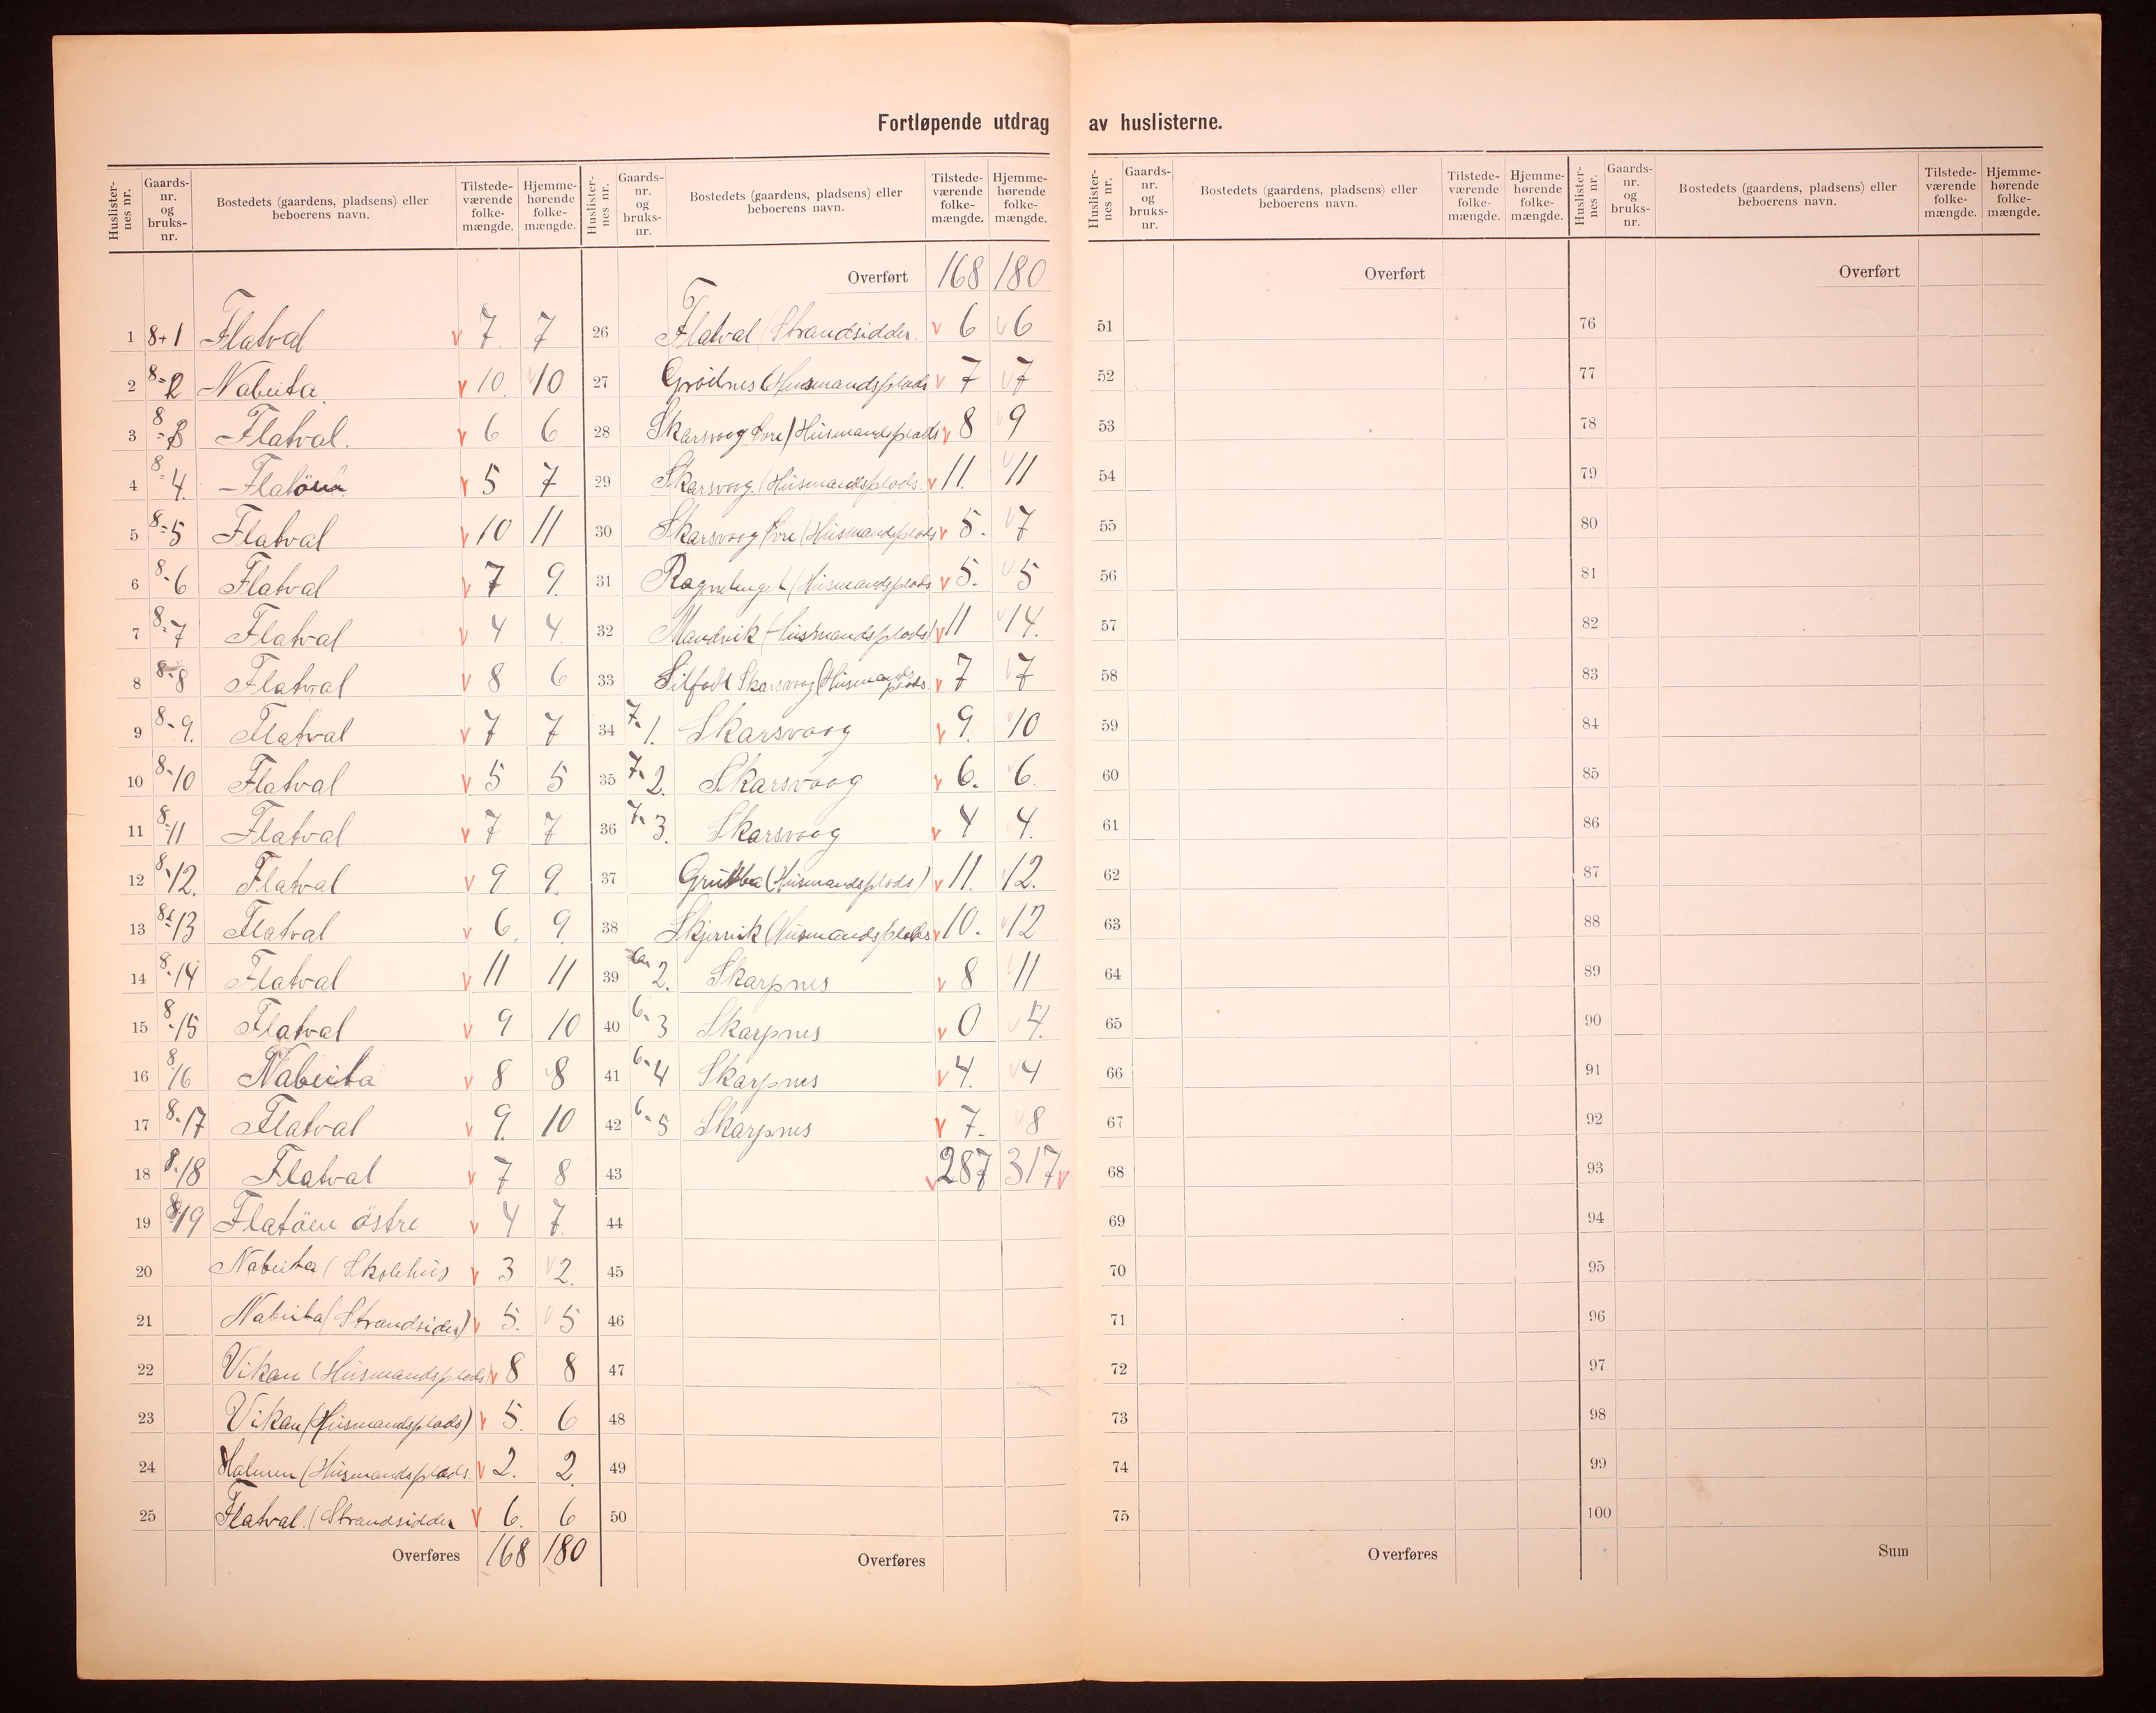 Fortløpende utdrag av huslisterne.
Huslister-nes nr. | Gaards-nr. og bruks-nr. | Bostedets (gaardens, pladsens) eller beboerens navn. | Tilstede-værende folke-mængde. | Hjemme-hørende folke-mængde.
1 8-1 Flatval 7 7
2 8-2 Nabeita 10 10
3 8-3 Flatval. 6 6
4 8-4. Flatöen 5 7
5 8-5 Flatval 10 11
6 8-6 Flatval 7 9.
7 8-7 Flatval 4 4
8 8-8 Flatval 8 6
9 8-9. Flatval 7 7
10 8-10 Flatval 5 5
11 8-11 Flatval 7 7
12 8-12. Flatval 9 9.
13 8-13 Flatval 6. 9.
14 8-14 Flatval 11 11
15 8-15 Flatval 9 10
16 8-16 Nabeita 8 8
17 8-17 Flatval 9. 10
18 8-18 Flatval 7 8
19 8-19 Flatöen östre 4 7.
20 Nabeita (Skolehus 3 2.
21 Nabeita (Strandsider) 5. 5
22 Vikan (Husmandsplads) 8 8
23 Vikan (Husmandsplads) 5. 6
24 Halmen (Husmandsplads. 2. 2.
25 Flatval. (Strandsidder 6. 6
Overføres 168 180
Huslister-nes nr. | Gaards-nr. og bruks-nr. | Bostedets (gaardens, pladsens) eller beboerens navn. | Tilstede-værende folke-mængde. | Hjemme-hørende folke-mængde.
Overført 168 180
26 Flatval (Strandsidder. 6 6
27 (Husmandsplads 7 7
28 Skarsvoog (Husmandsplads 8 9
29 Skarsvoog. (Husmandsplads. 11. 11
30 Skarsvoog (Husmandsplads 5. 7
31 (Husmandsplads 5. 5
32 (Husmandsplads) 11 14.
33 Skarsvoog (Husmandsplads. 7 7
34 7-1. Skarsvoog 9. 10
35 7-2. Skarsvoog 6. 6.
36 7-3. Skarsvoog 4 4.
37 (Husmandsplads) 11. 12.
38 Skjervik (Husmandsplads 10. 12
39 2. Skarpnes 8 11
40 6-3 Skarpnes 0 4.
41 6-4 Skarpnes 4. 4
42 6-5 Skarpnes 7. 8
43 287 317
44
45
46
47
48
49
50
Overføres
Huslister-nes nr. | Gaards-nr. og bruks-nr. | Bostedets (gaardens, pladsens) eller beboerens navn. | Tilstede-værende folke-mængde. | Hjemme-hørende folke-mængde.
Overført
51
52
53
54
55
56
57
58
59
60
61
62
63
64
65
66
67
68
69
70
71
72
73
74
75
Overføres
Huslister-nes nr. | Gaards-nr. og bruks-nr. | Bostedets (gaardens, pladsens) eller beboerens navn. | Tilstede-værende folke-mængde. | Hjemme-hørende folke-mængde.
Overført
76
77
78
79
80
81
82
83
84
85
86
87
88
89
90
91
92
93
94
95
96
97
98
99
100
Sum